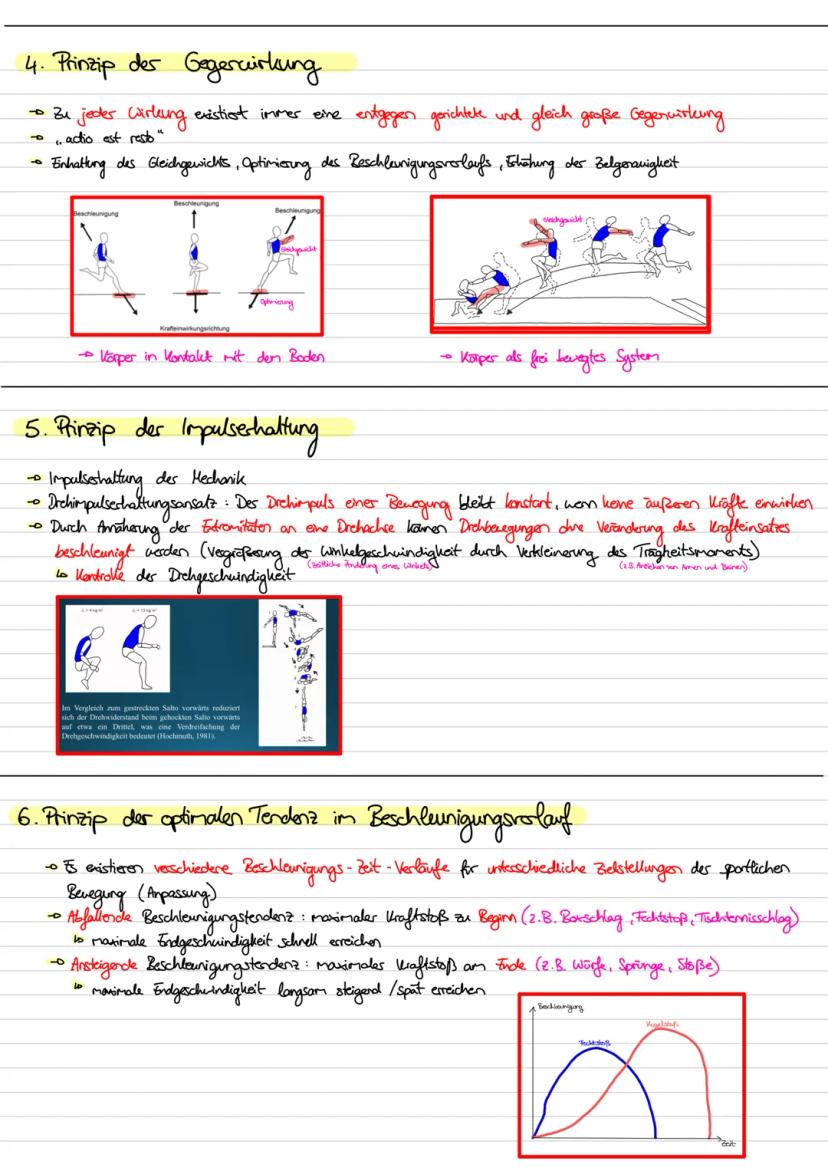 4. Prinzip der Gegenwirkung
→ Zu jeder Wirkung existiert immer eine entgegen gerichtete und gleich große Gegenwirkung
→ „actio est reatio"
→ Einhaltung des Gleichgewichts, Optimierung des Beschleunigungsverlaufs, Erhöhung der Zielgenauigkeit
Beschleunigung
Beschleunigung
Beschleunigung
Gleichgewicht
Optimierung
Krafteinwirkungsrichtung
Gleichgewicht
→ Körper in Kontakt mit dem Boden
→ Körper als frei bewegtes System
5. Prinzip der Impulserhaltung
→ Impulserhaltung der Mechanik
→ Drehimpulserhaltungsansatz: Der Drehimpuls einer Bewegung bleibt konstant, wenn keine äußeren Kräfte einwirken
→ Durch Annäherung der Extremitäten an eine Drehachse können Drehbewegungen ohne Veränderung des Krafteinsatzes
beschleunigt werden (Vergrößerung der Winkelgeschwindigkeit durch Verkleinerung des Trägheitsmoments)
(zeitliche Änderung eines Winkels) (z.B. Anziehen von Armen und Beinen)
↳ Kontrolle der Drehgeschwindigkeit
Im Vergleich zum gestreckten Salto vorwärts reduziert
sich der Drehwiderstand beim gehockten Salto vorwärts
auf etwa ein Drittel, was eine Verdreifachung der
Drehgeschwindigkeit bedeutet (Hochmuth, 1981).
6. Prinzip der optimalen Tendenz im Beschleunigungsverlauf
→ Es existieren verschiedene Beschleunigungs-Zeit-Verläufe für unterschiedliche Zielstellungen der sportlichen
Bewegung (Anpassung)
→ Abfallende Beschleunigungstendenz: maximaler Kraftstoß zu Beginn (z.B. Boxschlag, Fechtstoß, Tischtennisschlag)
↳ maximale Endgeschwindigkeit schnell erreichen
→ Ansteigende Beschleunigungstendenz: maximaler Kraftstoß am Ende (z.B. Würfe, Sprünge, Stöße)
↳ maximale Endgeschwindigkeit langsam steigend / spät erreichen
Beschleunigung
Kugelstoß
Fechtstoß
Zeit